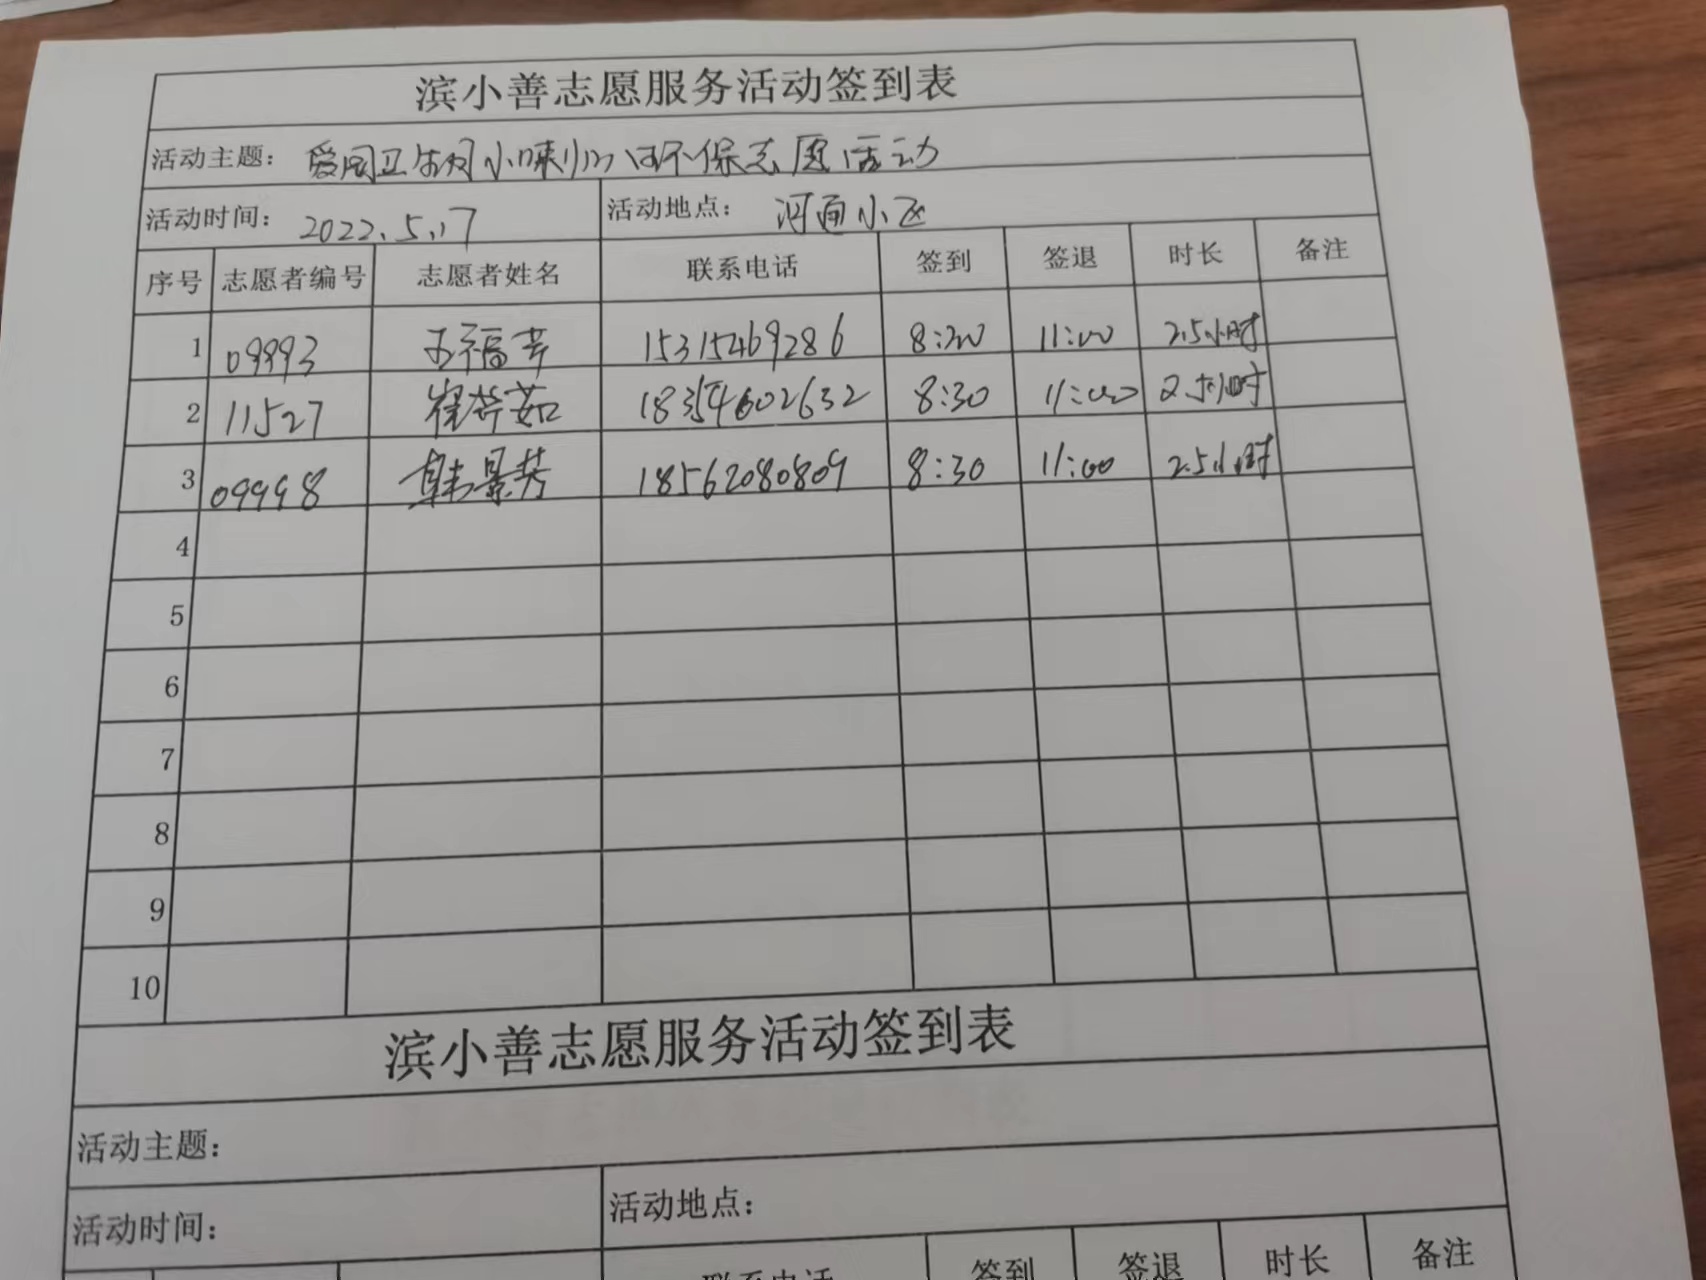 滨小善志愿服务活动签到表
活动主题： 爱国卫生月小喇叭环保志愿活动
活动时间： 2022.5.17 活动地点： 河面小区
序号 志愿者编号 志愿者姓名 联系电话 签到 签退 时长 备注
1 09993 王福芳 15315469286 8:30 11:00 2.5小时
2 11527 崔芬茹 18354602632 8:30 11:00 2.5小时
3 09998 韩景芳 18562080809 8:30 11:00 2.5小时
4
5
6
7
8
9
10
滨小善志愿服务活动签到表
活动主题：
活动时间： 活动地点：
联系电话 签到 签退 时长 备注